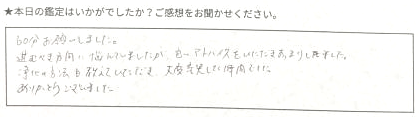 ★本日の鑑定はいかがでしたか？ご感想をお聞かせください。
60分お願いしました。
進むべき方向に悩んでいましたが、色々アドバイスをいただきすっきりしました。
浄化の方法も教えていただき、大変充実した時間でした。
ありがとうございました